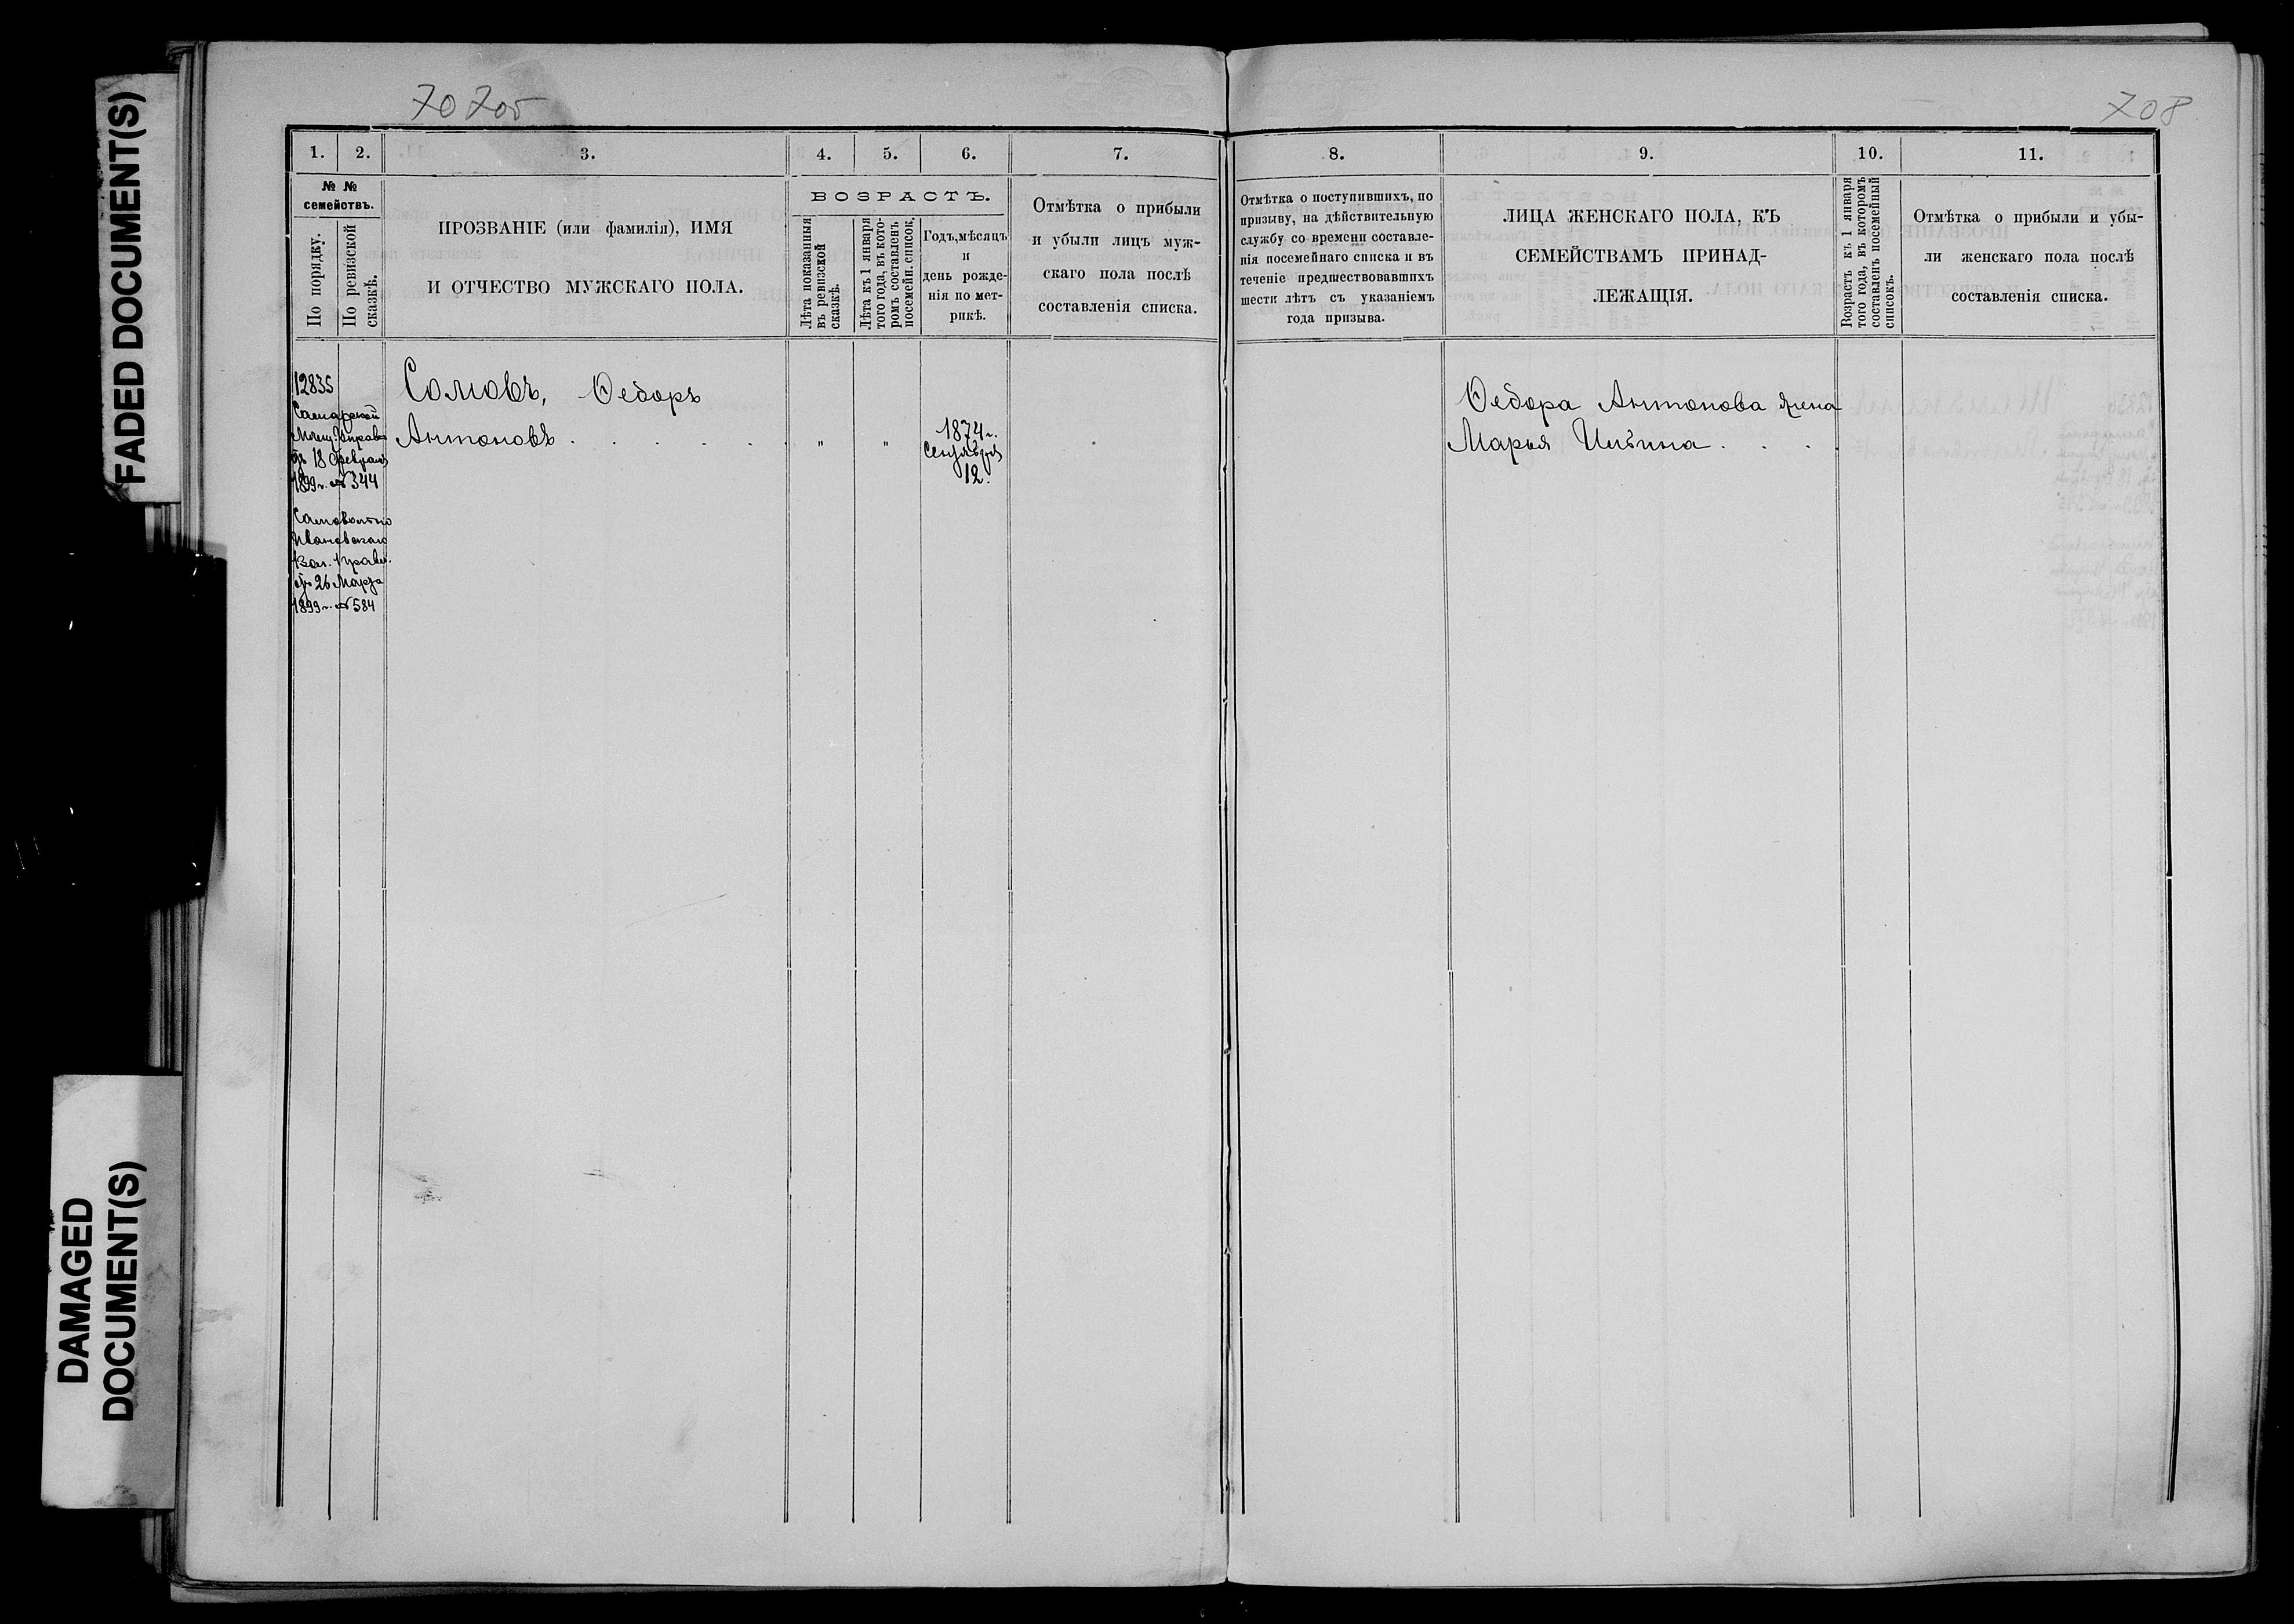 FADED DOCUMENT(S)
DAMAGED
DOCUMENT(S)
708
1. 2. 3. 4. 5. 6. 7.
№ №
семействъ.
По порядку.
По ревизской
сказкѣ.
ПРОЗВАНІЕ (или фамилія), ИМЯ
И ОТЧЕСТВО МУЖСКАГО ПОЛА.
ВОЗРАСТЪ.
Лѣта показанныя
въ ревизской
сказкѣ.
Лѣта къ 1 января
того года, въ кото-
ромъ составленъ
посемейн. список.
Годъ, мѣсяцъ
и
день рожде-
нія по мет-
рикѣ.
Отмѣтка о прибыли
и убыли лицъ муж-
скаго пола послѣ
составленія списка.
12835
Самарской
Мѣщ. Управы
отъ 18 Февраля
1899 г. № 344
Ивановскаго
Вол. Правл.
отъ 26 Марта
1899 г. № 584
Сомовъ, Ѳедоръ
Антоновъ . . . . . .
" "
1874 г.
Сентября
12.
8. 9. 10. 11.
Отмѣтка о поступившихъ, по
призыву, на дѣйствительную
службу со времени составле-
нія посемейнаго списка и въ
теченіе предшествовавшихъ
шести лѣтъ съ указаніемъ
года призыва.
ЛИЦА ЖЕНСКАГО ПОЛА, КЪ
СЕМЕЙСТВАМЪ ПРИНАД-
ЛЕЖАЩІЯ.
Возрастъ къ 1 января
того года, въ которомъ
составленъ посемейный
списокъ.
Отмѣтка о прибыли и убы-
ли женскаго пола послѣ
составленія списка.
Ѳедора Антонова жена
Марья . . . .